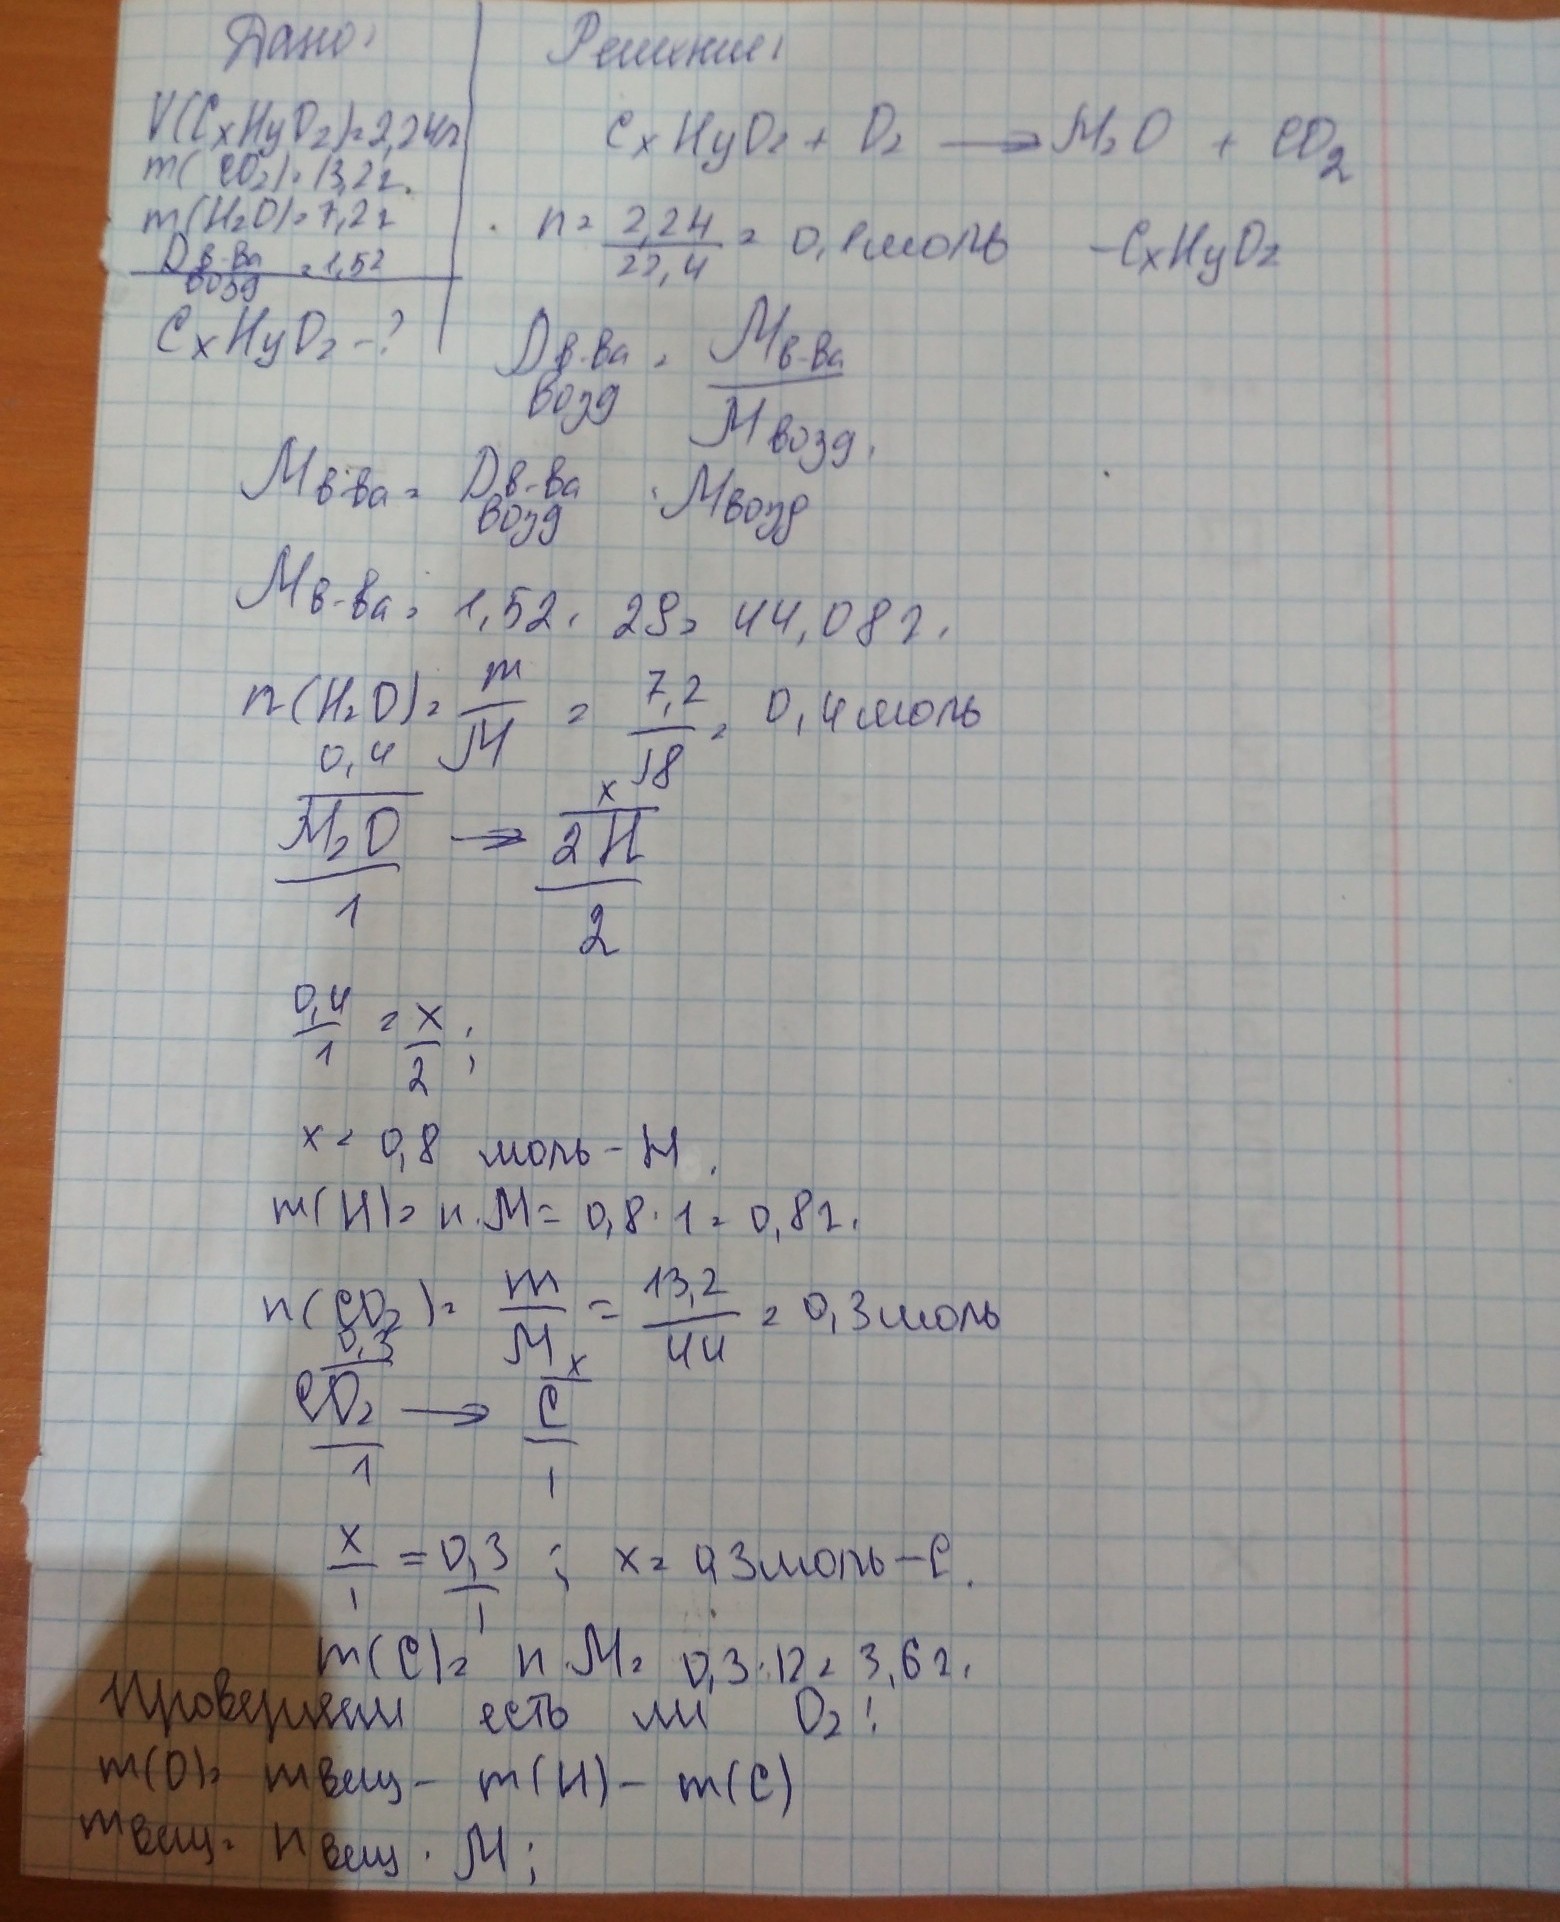 Дано:
V(CxHyOz)=2,24л
m(CO2)=13,2г.
m(H2O)=7,2г
Dв-ва/возд=1,52
CxHyOz-?
Решение:
CxHyOz + O2 → H2O + CO2
n = 2,24/22,4 = 0,1моль -CxHyOz
Dв-ва/возд = Mв-ва/Mвозд.
Mв-ва = Dв-ва/возд · Mвозд
Mв-ва = 1,52 · 29 = 44,08г.
n(H2O) = m/M = 7,2/18 = 0,4моль
0,4 x
H2O → 2H
1 2
0,4/1 = x/2;
x = 0,8 моль-H.
m(H) = n·M = 0,8·1 = 0,8г.
n(CO2) = m/M = 13,2/44 = 0,3моль
0,3 x
CO2 → C
1 1
x/1 = 0,3/1; x = 0,3моль-C.
m(C) = n·M = 0,3·12 = 3,6г.
Проверяем есть ли O2:
m(O) = mвещ - m(H) - m(C)
mвещ = nвещ · M;